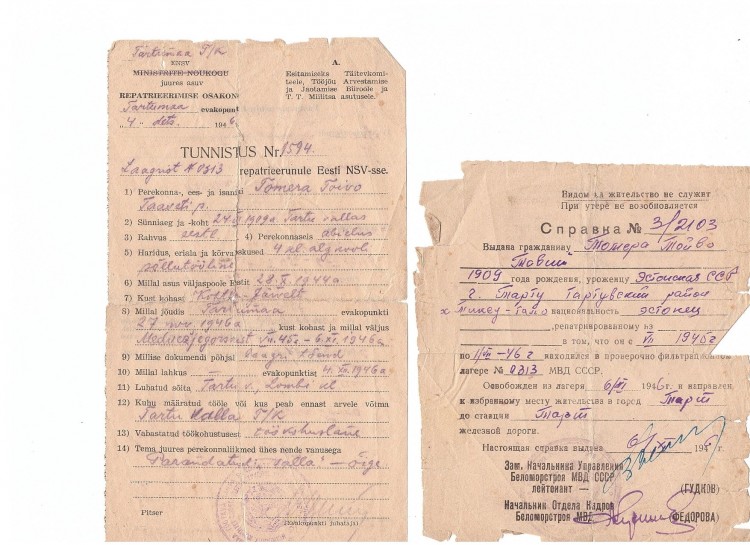 Tartumaa T/K
ENSV
MINISTRITE NÕUKOGU
juures asuv
REPATRIEERIMISE OSAKOND
Tartumaa evakopunkt
"4" dets. 1946
A.
Esitamiseks Täitevkomi-
teele, Tööjõu Arvestamise
ja Jaotamise Büroole ja
T. T. Miilitsa asutusele.
TUNNISTUS Nr. 1594.
Laagrist N 0313 repatrieerunule Eesti NSV-sse.
1) Perekonna-, ees- ja isanimi Tomera Toivo
Taaveti p.
2) Sünniaeg ja -koht 1909a Tartu vallas
3) Rahvus eestl. 4) Perekonnaseis abielus
5) Haridus, eriala ja kõrvalerialad 4 kl. algkooli
põllutööline
6) Millal asus väljaspoole Eestit 28.IX.1944a
7) Kust kohast
8) Millal jõudis Tartumaa evakopunkti
27 nov. 1946a kust kohast ja millal väljus
1945a - 6.XI.1946a
9) Millise dokumendi põhjal laagri tõend
10) Millal lahkus evakopunktist 4.XII.1946a
11) Lubatud sõita Tartu v., Lombi kl
12) Kuhu määratud tööle või kus peab ennast arvele võtma
Tartu Valla T/K
13) Vabastatud töökohustusest töökohuslane
14) Tema juures perekonnaliikmed ühes nende vanusega
"Parandatud: valla" - õige
Pitser
(Evakopunkti juhataja)
Видом на жительство не служит
При утере не возобновляется
Справка № 3/2103
Выдана гражданину Томера Тойво
1909 года рождения, уроженцу Эстонская ССР
г. Тарту Тартувский район
национальность эстонец
репатриированному из
в том, что он с VII 1945г
по -46 г находился в проверочно фильтрационном
лагере № 0313 МВД СССР.
Освобожден из лагеря 6/XI 1946г. и направлен
к избранному месту жительства в город Тарт
до станции Тарт
железной дороги.
Настоящая справка выдана 194
Зам. Начальника Управления
Беломорстроя МВД СССР
лейтенант — (ГУДКОВ)
Начальник Отдела Кадров
Беломорстроя МВД (ФЕДОРОВА)